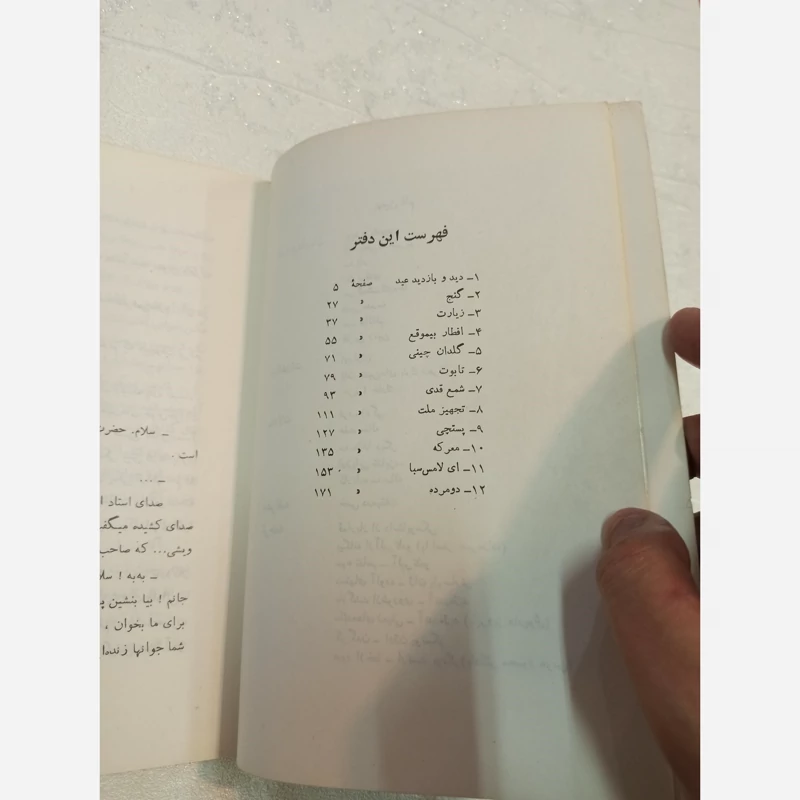 فهرست این دفتر
۱ـ دید و بازدید عید صفحهٔ ۵
۲ـ گنج » ۲۷
۳ـ زیارت » ۳۷
۴ـ افطار بیموقع » ۵۵
۵ـ گلدان چینی » ۷۱
۶ـ تابوت » ۷۹
۷ـ شمع قدی » ۹۳
۸ـ تجهیز ملت » ۱۱۱
۹ـ پستچی » ۱۲۷
۱۰ـ معرکه » ۱۳۵
۱۱ـ ای لامس‌سبا » ۱۵۳
۱۲ـ دومرده » ۱۷۱
ـ سلام. حضرت
است.
ـ ...
صدای استاد ا
صدای کشیده میگف
وبشی... که صاحب
ـ به‌به ! سلا
جانم ! بیا بنشین پ
برای ما بخوان ،
شما جوانها زنده‌ا